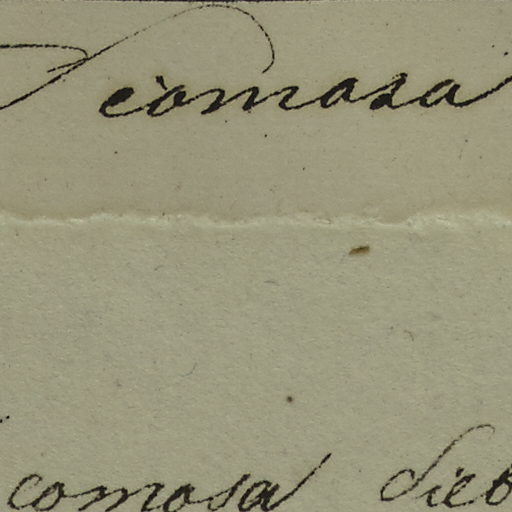 comosa
comosa Sieb